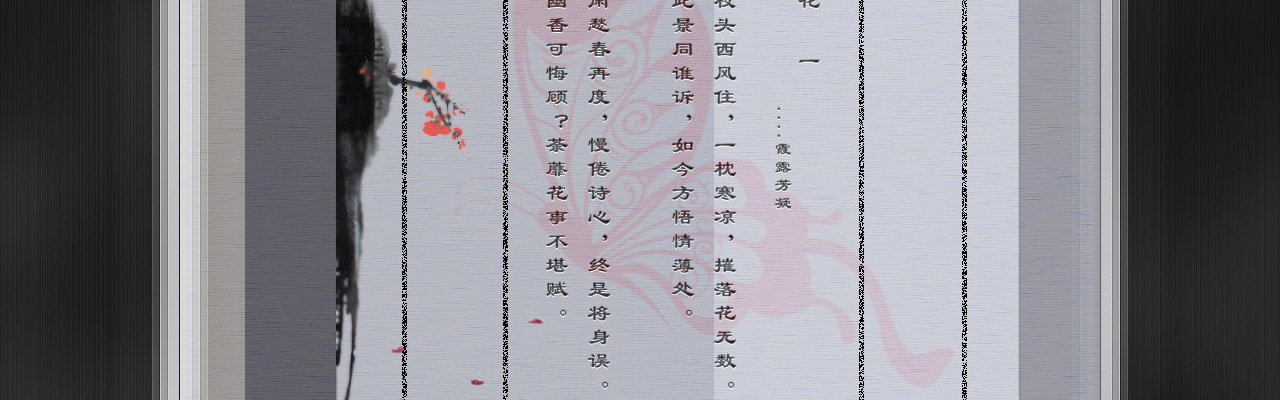 花 一
....霞露芳凝
枝头西风住，一枕寒凉，摧落花无数。
此景同谁诉，如今方悟情薄处。
愁春再度，慢倦诗心，终是将身误。
幽香可悔顾？荼蘼花事不堪赋。